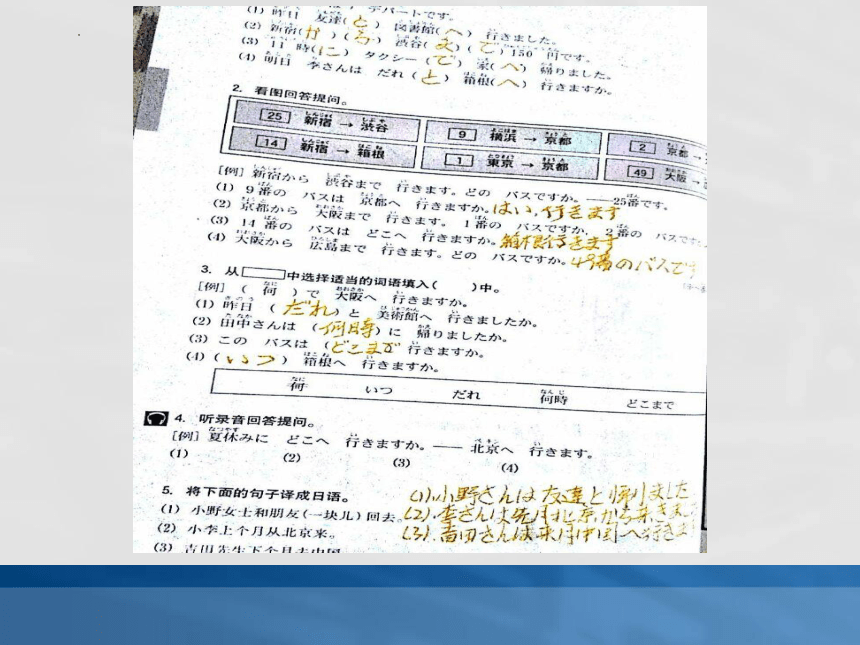 デパートです。
(1) 昨日 友達(と) 図書館(へ) 行きました。
(2) 新宿(か)(ら) 渋谷( )(で)150円です。
(3) 11時(に) タクシー(で) 家(へ) 帰りました。
(4) 明日 李さんは だれ(と) 箱根(へ) 行きますか。
2. 看图回答提问。
25 新宿 → 渋谷 9 横浜 → 京都 2 京都 →
14 新宿 → 箱根 1 東京 → 京都 49 大阪 →
[例] 新宿から 渋谷まで 行きます。どの バスですか。——25番です。
(1) 9番の バスは 京都へ 行きますか。はい,行きます
(2) 京都から 大阪まで 行きます。 1番の バスですか, 2番の バスです
(3) 14番の バスは どこへ 行きますか。箱根行きます
(4) 大阪から 広島まで 行きます。どの バスですか。49番のバスです
3. 从 中选择适当的词语填入( )中。
[例] (何)で 大阪へ 行きますか。
(1) 昨日 (だれ)と 美術館へ 行きましたか。
(2) 田中さんは (何時)に 帰りましたか。
(3) この バスは (どこまで 行きますか。
(4) (いつ) 箱根へ 行きますか。
何 いつ だれ 何時 どこまで
4. 听录音回答提问。
[例] 夏休みに どこへ 行きますか。—— 北京へ 行きます。
(1) (2) (3) (4)
5. 将下面的句子译成日语。 (1).小野さんは 友達と 帰りました
(1) 小野女士和朋友(一块儿)回去。(2).李さんは先月北京から来ました
(2) 小李上个月从北京来。 (3).吉田さんは来月中国へ行きま
(3) 吉田先生下个月去中国